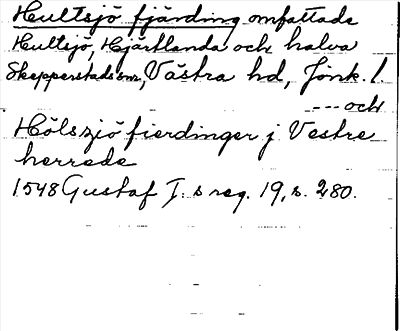 Hultsjö fjärding omfattade
Hultsjö, Hjärtlanda och halva
Skepperstads snr, Västra hd, Jönk. l.
--- och
Hölszjö fierdinger j Vestre
herrede
1548 Gustaf I:s reg. 19, s. 280.